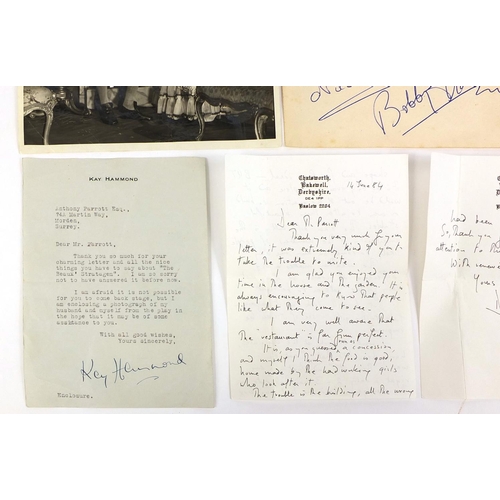 Bobby
KAY HAMMOND
Anthony Parrott Esq.,
Martin Way,
Morden,
Surrey.
Dear Mr. Parrott,
Thank you so much for your
charming letter and all the nice
things you have to say about "The
Beaux' Stratagem". I am so sorry
not to have answered it before now.
I am afraid it is not possible
for you to come back stage, but I
am enclosing a photograph of my
husband and myself from the play in
the hope that it may be of some
assistance to you.
With all good wishes,
Yours sincerely,
Kay Hammond
Enclosure.
Chatsworth,
Bakewell,
Derbyshire.
Baslow 2204
14 June 84
Dear Mr. Parrott
Thank you very much for your
letter, it was extremely kind of you to
take the trouble to write.
I am glad you enjoyed your
time in the house and the garden. It is
always encouraging to know that people
like what they come to see.
I am very well aware that
the restaurant is far from perfect.
It is, as you guessed, a concession
and myself I think the food is good,
home made by the hardworking girls
who look after it.
The trouble is the building, all the wrong
had been
So, thank you
attention to
With renewed
Yours